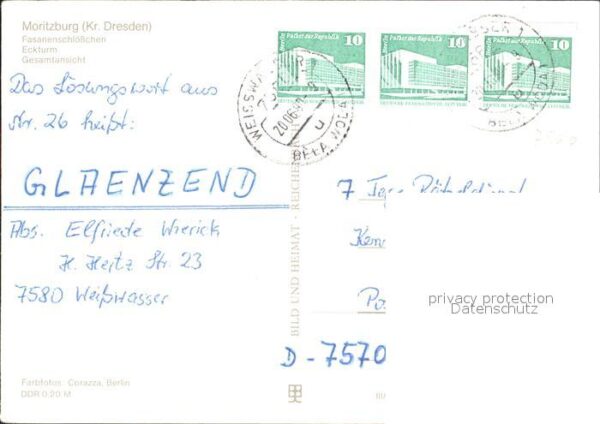 Moritzburg (Kr. Dresden)
Fasanenschlößchen
Eckturm
Gesamtansicht
Das Lösungswort aus
Nr. 26 heißt:
GLAENZEND
Abs. Elfriede
H. Hertz Str. 23
7580 Weißwasser
Farbfotos: Corazza, Berlin
DDR 0,20 M
BILD UND HEIMAT · REICHENBACH
Berlin Palast der Republik 10
Berlin Palast der Republik 10
Berlin Palast der Republik 10
WEISSWASSER 1
BĚŁA WODA
7 Tage
D-7570
privacy protection
Datenschutz